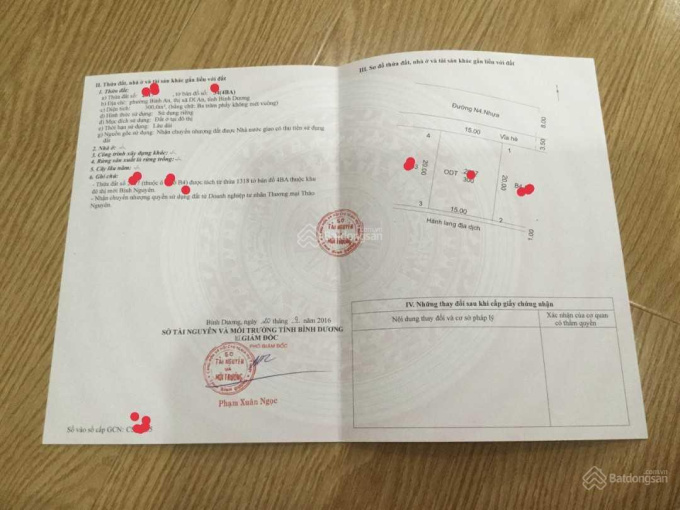 II. Thửa đất, nhà ở và tài sản khác gắn liền với đất
1. Thửa đất:
a) Thửa đất số: tờ bản đồ số: (4BA)
b) Địa chỉ: phường Bình An, thị xã Dĩ An, tỉnh Bình Dương
c) Diện tích: 300,0m², (bằng chữ: Ba trăm phẩy không mét vuông)
d) Hình thức sử dụng: Sử dụng riêng
đ) Mục đích sử dụng: Đất ở tại đô thị
e) Thời hạn sử dụng: Lâu dài
g) Nguồn gốc sử dụng: Nhận chuyển nhượng đất được Nhà nước giao có thu tiền sử dụng đất
2. Nhà ở: -/-
3. Công trình xây dựng khác: -/-
4. Rừng sản xuất là rừng trồng: -/-
5. Cây lâu năm: -/-
6. Ghi chú:
- Thửa đất số (thuộc ô B4) được tách từ thửa 1318 tờ bản đồ 4BA thuộc khu
đô thị mới Bình Nguyên.
- Nhận chuyển nhượng quyền sử dụng đất từ Doanh nghiệp tư nhân Thương mại Thảo
Nguyên.
SỞ
TÀI NGUYÊN
VÀ
MÔI TRƯỜNG
Bình Dương, ngày tháng năm 2016
SỞ TÀI NGUYÊN VÀ MÔI TRƯỜNG TỈNH BÌNH DƯƠNG
GIÁM ĐỐC
PHÓ GIÁM ĐỐC
SỞ
TÀI NGUYÊN
VÀ
MÔI TRƯỜNG
Phạm Xuân Ngọc
Số vào sổ cấp GCN: CS
III. Sơ đồ thửa đất, nhà ở và tài sản khác gắn liền với đất
Đường N4 Nhựa
8.00
15.00
Vỉa hè
3.50
4
1
20.00
ODT
300
20.00
3
15.00
Hành lang địa dịch
1.00
IV. Những thay đổi sau khi cấp giấy chứng nhận
Nội dung thay đổi và cơ sở pháp lý
Xác nhận của cơ quan
có thẩm quyền
Batdongsan
.com.vn